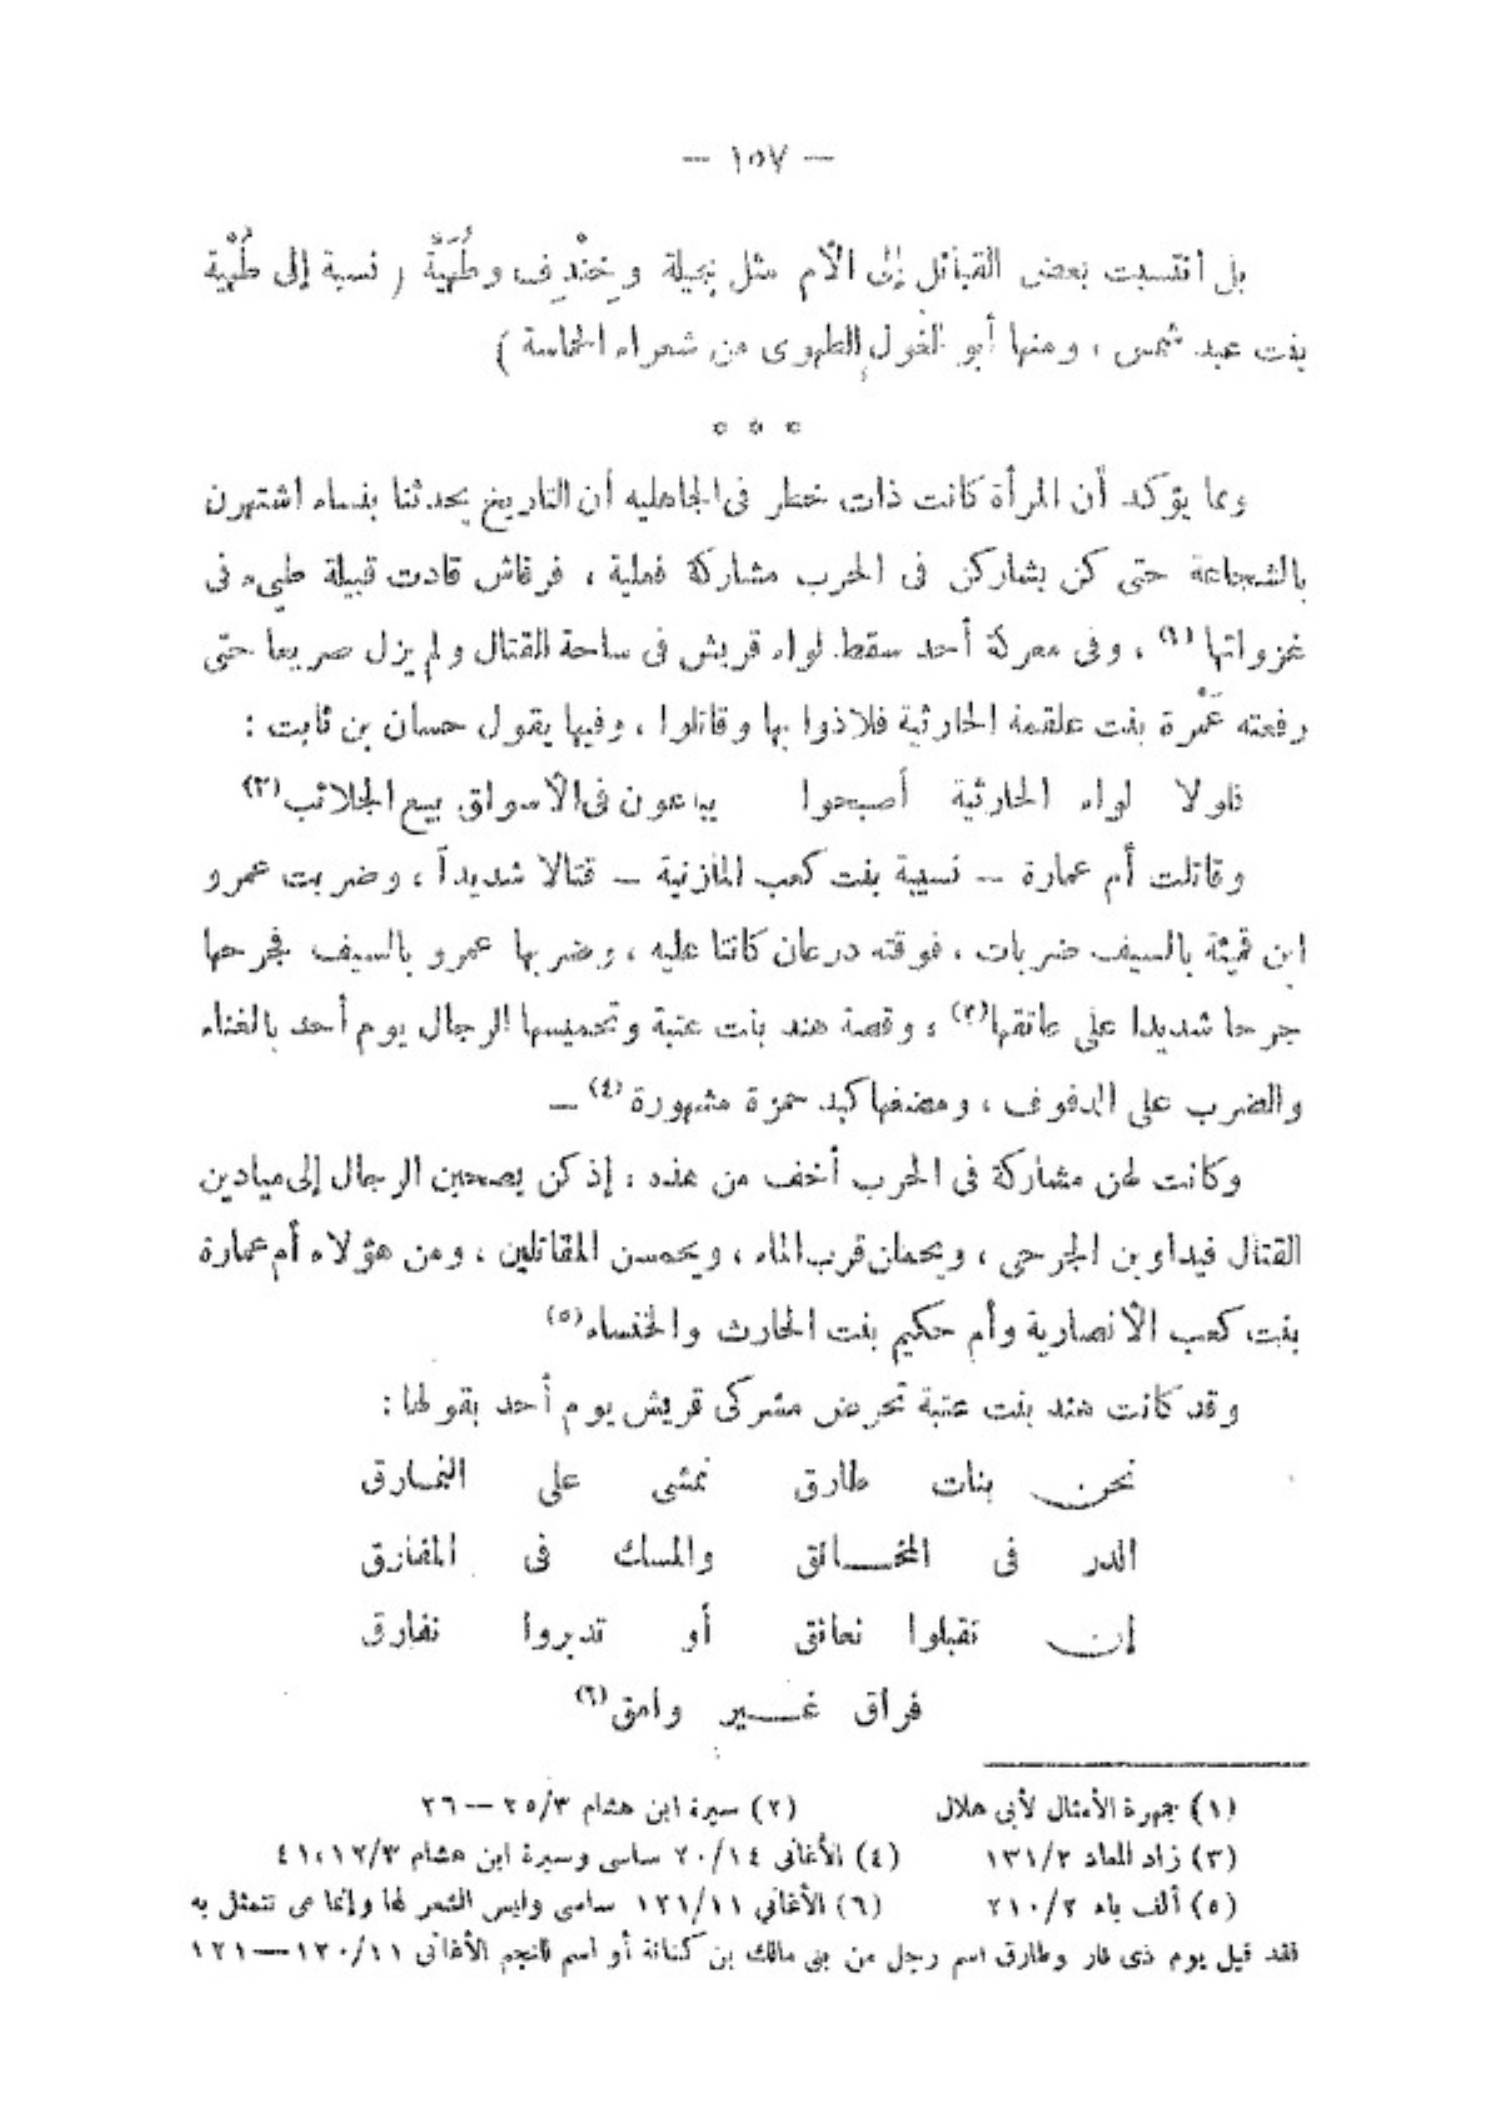 — ١٥٧ —
بل انتسبت بعض القبائل إلى الأم مثل بجيلة وخِنْدِف وطُهَيَّة ( نسبة إلى طُهْية
بنت عبد شمس ، ومنها أبو الغول الطهوى من شعراء الحماسة )
* * *
ومما يؤكد أن المرأة كانت ذات خطر فى الجاهليه أن التاريخ يحدثنا بنساء اشتهرن
بالشجاعة حتى كن يشاركن فى الحرب مشاركة فعلية ، فرقاش قادت قبيلة طيىء فى
غزواتها (١) ، وفى معركة أحد سقط لواء قريش فى ساحة القتال ولم يزل صريعا حتى
رفعته عَمْرة بنت علقمة الحارثية فلاذوا بها وقاتلوا ، وفيها يقول حسان بن ثابت :
فلولا لواء الحارثية أصبحوا يباعون فى الأسواق بيع الجلائب (٢)
وقاتلت أم عمارة — نسيبة بنت كعب المازنية — قتالا شديداً ، وضربت عمرو
ابن قميئة بالسيف ضربات ، فوقته درعان كانتا عليه ، وضربها عمرو بالسيف فجرحها
جرحا شديدا على عاتقها (٣) ، وقصة هند بنت عتبة وتحميسها الرجال يوم أحد بالغناء
والضرب على الدفوف ، ومضغها كبد حمزة مشهورة (٤) —
وكانت لهن مشاركة فى الحرب أخف من هذه : إذ كن يصحبن الرجال إلى ميادين
القتال فيداوين الجرحى ، ويحملن قرب الماء ، ويحمسن المقاتلين ، ومن هؤلاء أم عمارة
بنت كعب الأنصارية وأم حكيم بنت الحارث والخنساء (٥)
وقد كانت هند بنت عتبة تحرض مشركى قريش يوم أحد بقولها :
نحن بنات طارق نمشى على النمارق
الدر فى المخانق والمسك فى المفارق
إن تقبلوا نعانق أو تدبروا نفارق
فراق غير وامق (٦)
(١) جمهرة الأمثال لأبى هلال (٢) سيرة ابن هشام ٣/٢٥ — ٢٦
(٣) زاد المعاد ٢/١٣١ (٤) الأغانى ١٤/٢٠ ساسى وسيرة ابن هشام ٣/١٢،٤١
(٥) ألف باء ٢/٢١٠ (٦) الأغانى ١١/١٢١ ساسى وليس الشعر لها وإنما هى تتمثل به
فقد قيل يوم ذى قار وطارق اسم رجل من بنى مالك بن كنانة أو اسم للنجم الأغانى ١١/١٢٠—١٢١